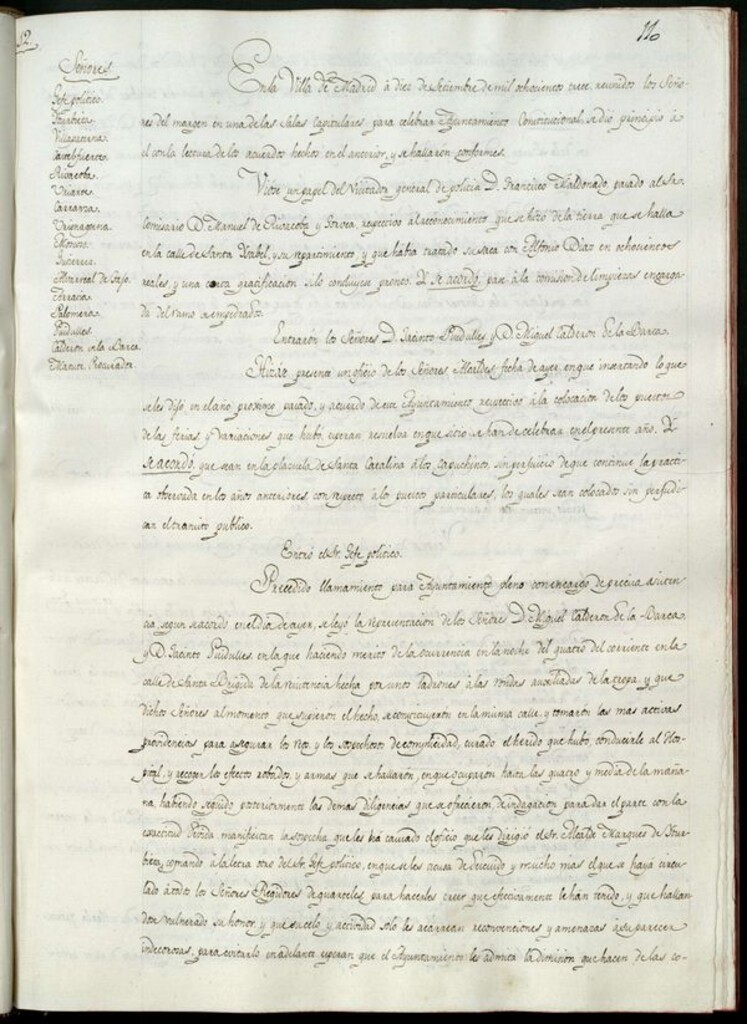 12.
116
Señores.
Gefe político.
Yturbieta.
Villapaterna.
Castelfuerte.
Rivacoba.
Uriarte.
Carranza.
Gutierrez.
Monreal de
Palomera.
Puidulles.
Calderon de la Barca.
Procurador.
En la Villa de Madrid á diez de Setiembre de mil ochocientos trece, reunidos los Seño-
res del margen en una de las Salas Capitulares para celebrar Ayuntamiento Constitucional, se dio principio á
él con la lectura de los acuerdos hechos en el anterior, y se hallaron conformes.
Vióse un papel del Visitador general de policía D. Francisco Maldonado, pasado al Sr.
Comisario D. Manuel de Rivacoba y Gorvea, respectivo al reconocimiento que se hizo de la tierra que se halla
en la calle de Santa Ysabel, y su repartimiento, y que había tratado su saca con Alfonso Diaz en ochocientos
reales, y una corta gratificacion si lo concluyen pronto. Y se acordó, pase á la comision de limpiezas encarga-
da del ramo de empedrados.
Entraron los Señores D. Jacinto Puidulles, y D. Miguel Calderon de la Barca.
Hizose presente un oficio de los Señores Alcaldes fecha de ayer, en que insertando lo que
se les dijo en el año proximo pasado, y acuerdo de este Ayuntamiento respectivo á la colocacion de los puestos
de las ferias, y variaciones que hubo, esperan resuelva en que sitio se han de celebrar en el presente año. Y
se acordó, que sean en la plazuela de Santa Catalina á los Capuchinos, sin perjuicio de que continue la practi-
ca observada en los años anteriores con respecto á los puestos particulares, los quales sean colocados sin perjudi-
car el transito publico.
Entró el Sr. Gefe político.
Precedido llamamiento para Ayuntamiento pleno con encargo de precisa asisten-
cia, segun se acordó en el dia de ayer, se leyó la representacion de los Señores D. Miguel Calderon de la Barca,
y D. Jacinto Puidulles, en la que haciendo merito de la ocurrencia en la noche del quatro del corriente en la
calle de Santa Brigida de la resistencia hecha por unos ladrones á las rondas auxiliadas de la tropa, y que
dichos Señores al momento que supieron el hecho, se constituyeron en la misma calle, y tomaron las mas activas
providencias para asegurar los reos, y los sospechosos de complicidad, curado el herido que hubo, conducirle al Hos-
pital, y recoger los efectos robados, y armas que se hallaron, en que ocuparon hasta las quatro y media de la maña-
na, habiendo seguido posteriormente las demas diligencias que se ofrecieron de indagacion para dar el parte con la
exactitud debida, manifiestan la sospecha que les ha causado el oficio que les dirigió el Sr. Alcalde Marques de Ytur-
bieta, copiando á la letra otro del Sr. Gefe político, en que se les acusa de descuido y mucho mas el que se haya circu-
lado á todos los Señores Regidores de quarteles para hacerles creer que efectivamente le han tenido, y que hallan-
dose vulnerado su honor, y que su celo, y actividad solo les acarrean reconvenciones y amenazas á su parecer
indecorosas, para evitarlo en adelante, esperan que el Ayuntamiento les admita la dimision que hacen de las co-